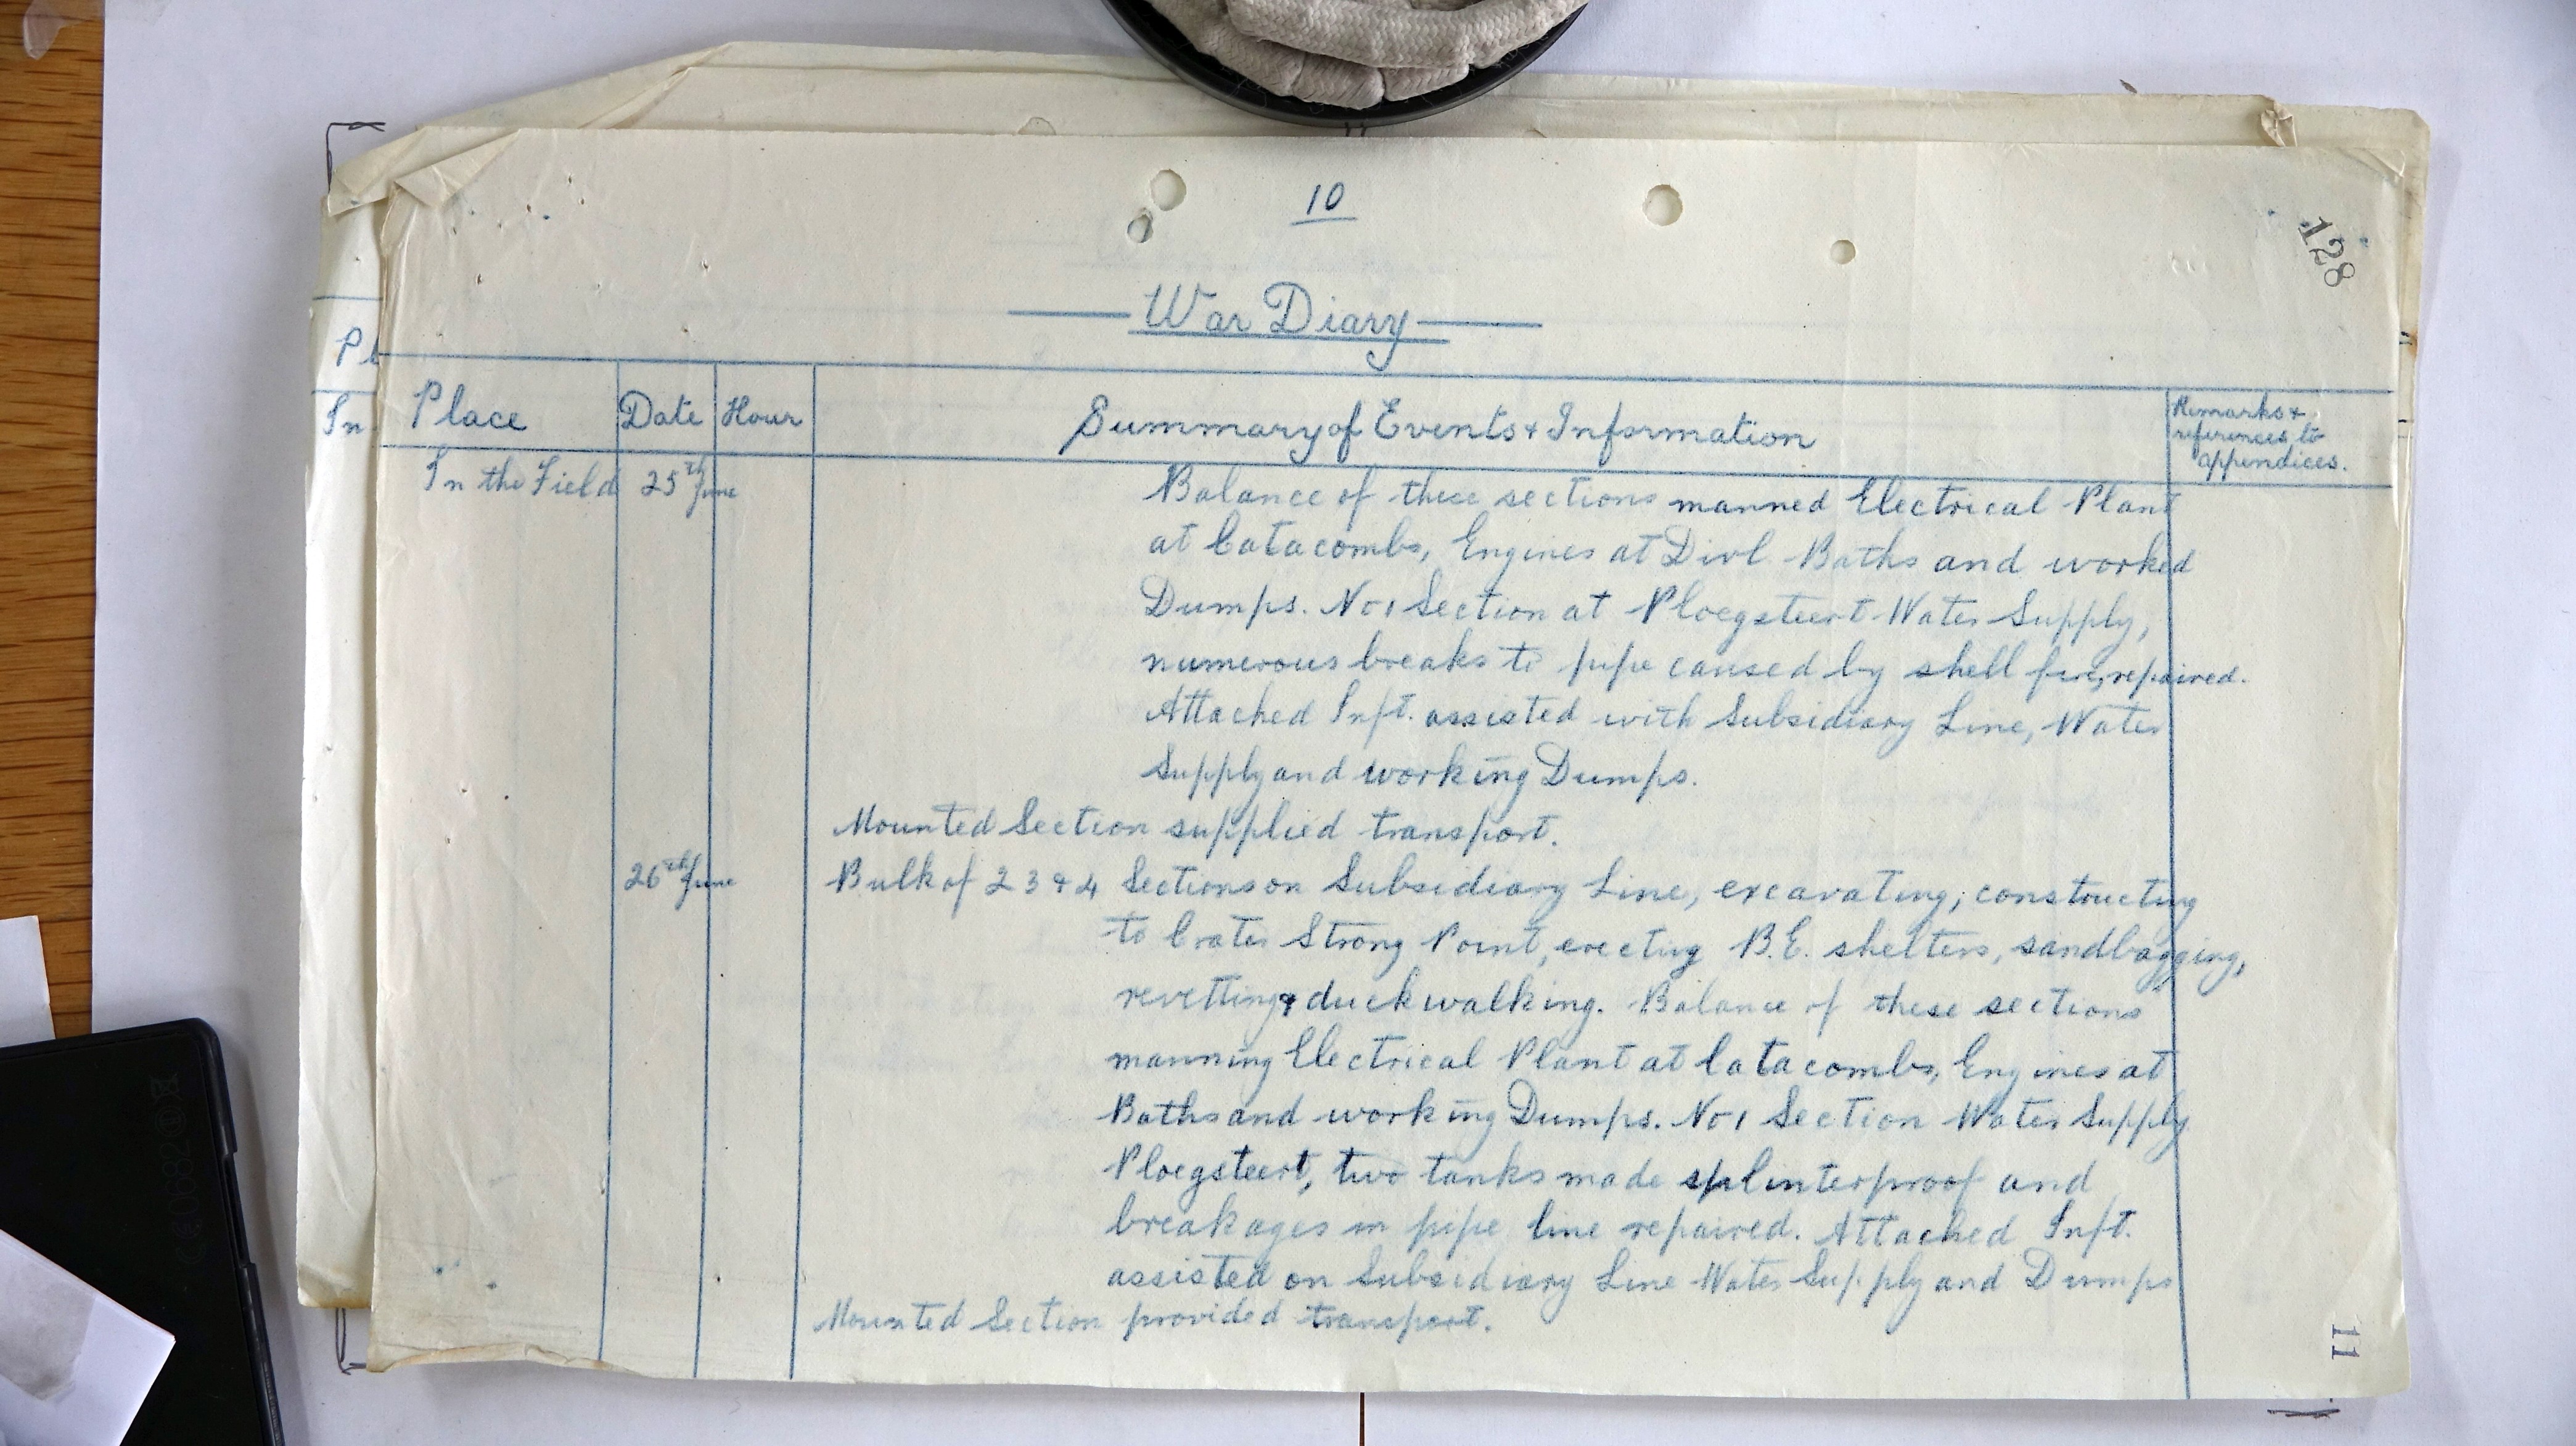 10
128
War Diary
Pl
Place Date Hour Summary of Events & Information Remarks & references to appendices.
In
In the Field 25th June Balance of these sections manned Electrical Plant
at Catacombs, Engines at Divl Baths and worked
Dumps. No 1 Section at Ploegsteert Water Supply,
numerous breaks to pipe caused by shell fire, repaired.
Attached Inft. assisted with Subsidiary Line, Water
Supply and working Dumps.
Mounted Section supplied transport.
26th June Bulk of 2 3 & 4 Sections on Subsidiary Line, excavating, constructing
to Crater Strong Point, erecting B.E. shelters, sandbagging,
revetting & duckwalking. Balance of these sections
manning Electrical Plant at Catacombs, Engines at
Baths and working Dumps. No 1 Section Water Supply
Ploegsteert, two tanks made splinterproof and
breakages in pipe line repaired. Attached Inft.
assisted on Subsidiary Line Water Supply and Dumps
Mounted Section provided transport.
11